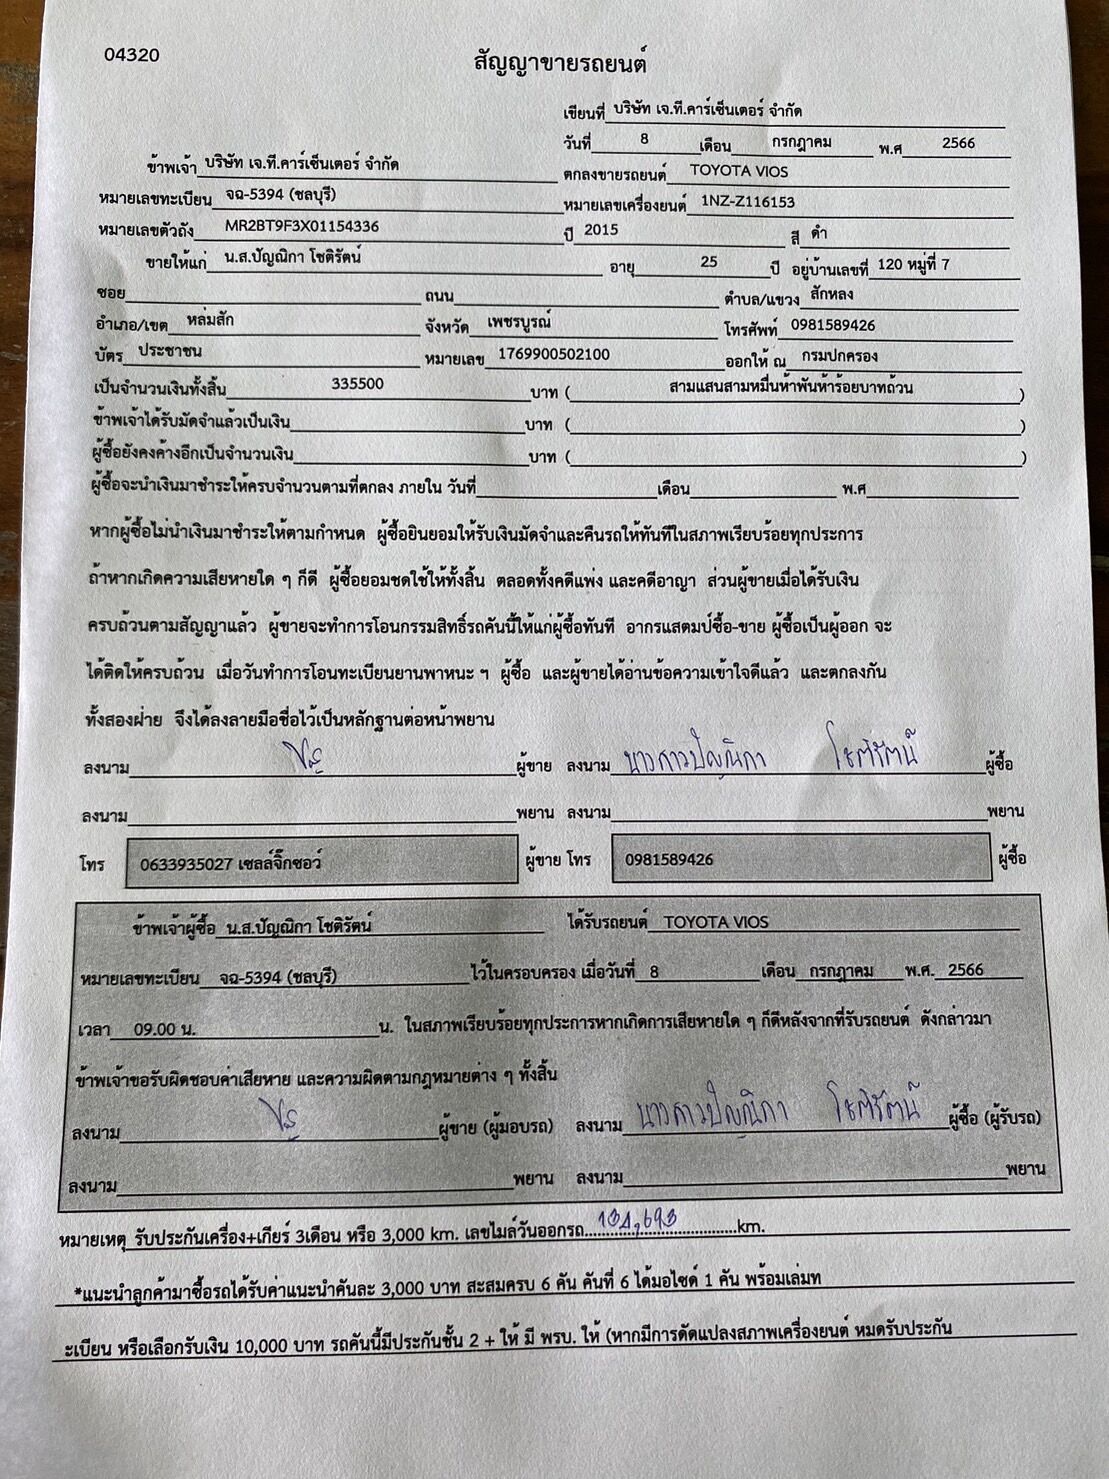 04320
สัญญาขายรถยนต์
เขียนที่ บริษัท เจ.ที.คาร์เซ็นเตอร์ จำกัด
วันที่ 8 เดือน กรกฎาคม พ.ศ 2566
ข้าพเจ้า บริษัท เจ.ที.คาร์เซ็นเตอร์ จำกัด ตกลงขายรถยนต์ TOYOTA VIOS
หมายเลขทะเบียน จฉ-5394 (ชลบุรี) หมายเลขเครื่องยนต์ 1NZ-Z116153
หมายเลขตัวถัง MR2BT9F3X01154336 ปี 2015 สี ดำ
ขายให้แก่ น.ส.ปัญณิกา โชติรัตน์ อายุ 25 ปี อยู่บ้านเลขที่ 120 หมู่ที่ 7
ซอย ถนน ตำบล/แขวง สักหลง
อำเภอ/เขต หล่มสัก จังหวัด เพชรบูรณ์ โทรศัพท์ 0981589426
บัตร ประชาชน หมายเลข 1769900502100 ออกให้ ณ กรมปกครอง
เป็นจำนวนเงินทั้งสิ้น 335500 บาท ( สามแสนสามหมื่นห้าพันห้าร้อยบาทถ้วน )
ข้าพเจ้าได้รับมัดจำแล้วเป็นเงิน บาท ( )
ผู้ซื้อยังคงค้างอีกเป็นจำนวนเงิน บาท ( )
ผู้ซื้อจะนำเงินมาชำระให้ครบจำนวนตามที่ตกลง ภายใน วันที่ เดือน พ.ศ
หากผู้ซื้อไม่นำเงินมาชำระให้ตามกำหนด ผู้ซื้อยินยอมให้รับเงินมัดจำและคืนรถให้ทันทีในสภาพเรียบร้อยทุกประการ
ถ้าหากเกิดความเสียหายใด ๆ ก็ดี ผู้ซื้อยอมชดใช้ให้ทั้งสิ้น ตลอดทั้งคดีแพ่ง และคดีอาญา ส่วนผู้ขายเมื่อได้รับเงิน
ครบถ้วนตามสัญญาแล้ว ผู้ขายจะทำการโอนกรรมสิทธิ์รถคันนี้ให้แก่ผู้ซื้อทันที อากรแสตมป์ซื้อ-ขาย ผู้ซื้อเป็นผู้ออก จะ
ได้ติดให้ครบถ้วน เมื่อวันทำการโอนทะเบียนยานพาหนะ ฯ ผู้ซื้อ และผู้ขายได้อ่านข้อความเข้าใจดีแล้ว และตกลงกัน
ทั้งสองฝ่าย จึงได้ลงลายมือชื่อไว้เป็นหลักฐานต่อหน้าพยาน
ลงนาม ผู้ขาย ลงนาม นางสาวปัญณิกา โชติรัตน์ ผู้ซื้อ
ลงนาม พยาน ลงนาม พยาน
โทร 0633935027 เซลล์จิ๊กซอว์ ผู้ขาย โทร 0981589426 ผู้ซื้อ
ข้าพเจ้าผู้ซื้อ น.ส.ปัญณิกา โชติรัตน์ ได้รับรถยนต์ TOYOTA VIOS
หมายเลขทะเบียน จฉ-5394 (ชลบุรี) ไว้ในครอบครอง เมื่อวันที่ 8 เดือน กรกฎาคม พ.ศ. 2566
เวลา 09.00 น. น. ในสภาพเรียบร้อยทุกประการหากเกิดการเสียหายใด ๆ ก็ดีหลังจากที่รับรถยนต์ ดังกล่าวมา
ข้าพเจ้าขอรับผิดชอบค่าเสียหาย และความผิดตามกฎหมายต่าง ๆ ทั้งสิ้น
ลงนาม ผู้ขาย (ผู้มอบรถ) ลงนาม นางสาวปัญณิกา โชติรัตน์ ผู้ซื้อ (ผู้รับรถ)
ลงนาม พยาน ลงนาม พยาน
หมายเหตุ รับประกันเครื่อง+เกียร์ 3เดือน หรือ 3,000 km. เลขไมล์วันออกรถ.....134,693.....km.
*แนะนำลูกค้ามาซื้อรถได้รับค่าแนะนำคันละ 3,000 บาท สะสมครบ 6 คัน คันที่ 6 ได้มอไซด์ 1 คัน พร้อมเล่มท
ะเบียน หรือเลือกรับเงิน 10,000 บาท รถคันนี้มีประกันชั้น 2 + ให้ มี พรบ. ให้ (หากมีการดัดแปลงสภาพเครื่องยนต์ หมดรับประกัน